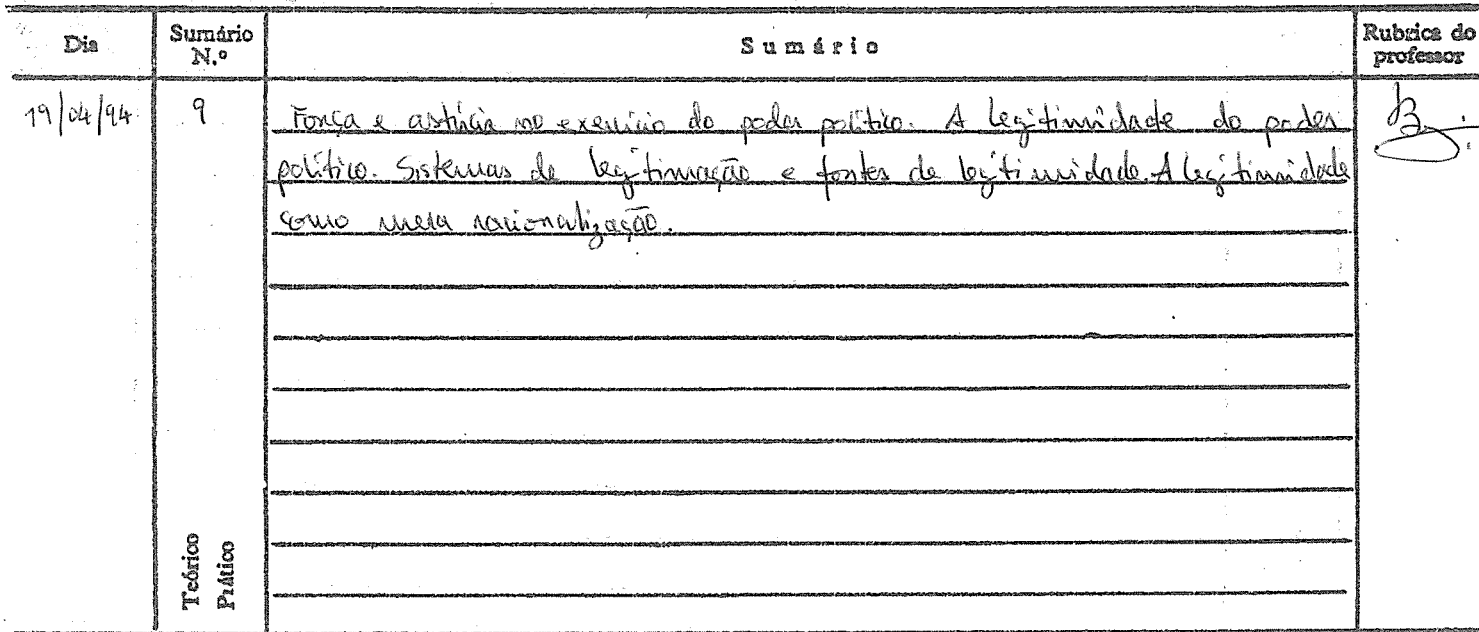 Dia Sumário N.º Sumário Rubrica do professor
19/04/94 9 Força e astúcia no exercício do poder político. A legitimidade do poder
político. Sistemas de legitimação e fontes de legitimidade. A legitimidade
como mera racionalização.
Teórico
Prático